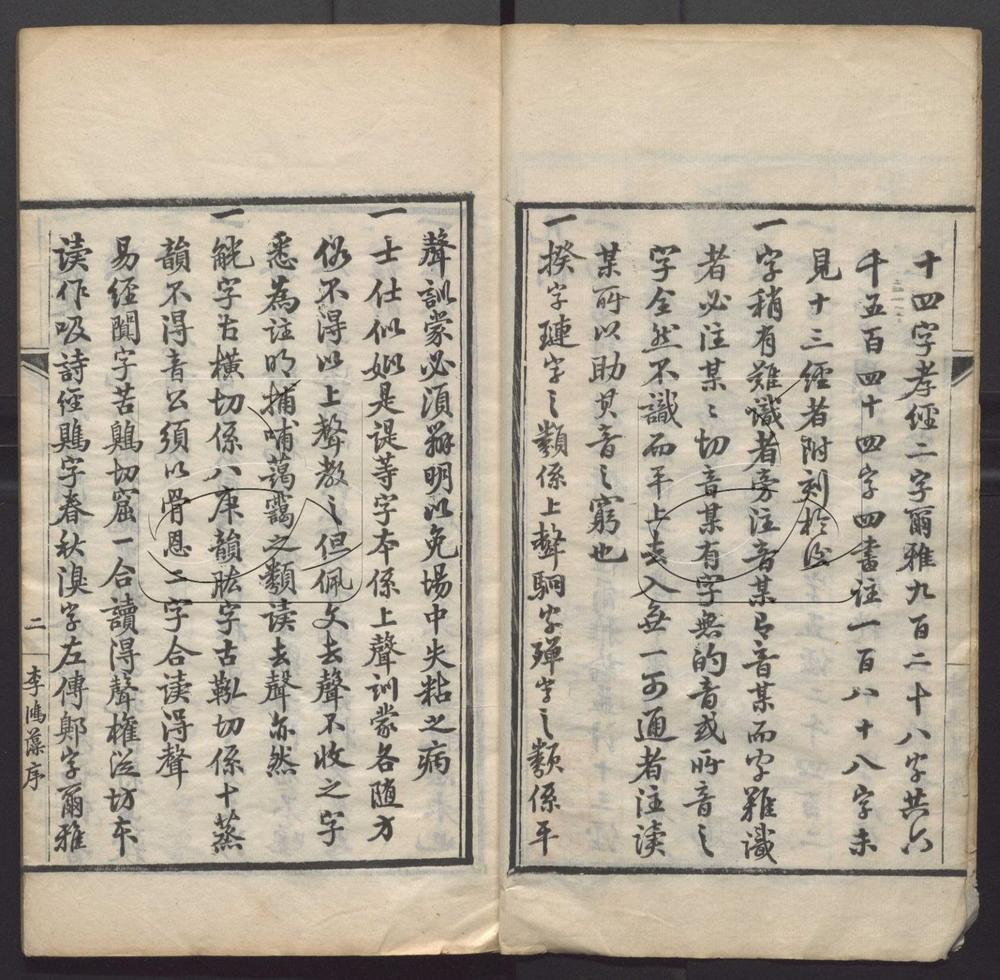 十四字孝經二字爾雅九百二十八字共六
千五百四十四字四畫註一百八十八字未
見十三經者附刻於後
一字稍有難識者旁注音某若音某而字難識
者必注某某切音某有字無的音或所音之
字全然不識而平上去入無一可通者注讀
某所以助其音之窮也
一揆字璉字之類係上聲駉字殫字之類係平
聲訓蒙必須辨明以免場中失粘之病
一士仕似姒是諟等字本係上聲訓蒙各隨方
俗不得以上聲教之但佩文去聲不收之字
悉為註明捕哺藹靄之類读去聲亦然
一觥字古橫切係八庚韻肱字古
切係十蒸
韻不得音公須以骨恩二字合读得聲
易經闃字苦鶪切窟一合讀得聲權從坊本
读作吸詩經鶪字春秋湨字左傳鄓字爾雅
二
李鴻藻序